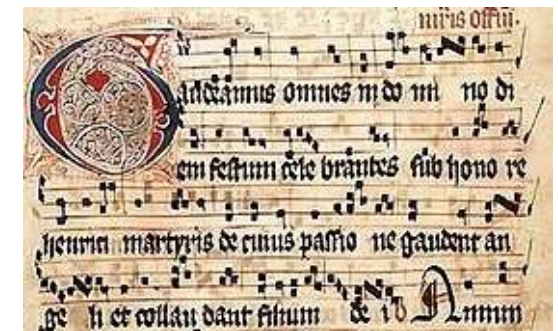 mris offm.
Gaudeamus omnes in do mi no di
em festum cele brantes sub hono re
henrici martyris de cuius passio ne gaudent an
ge li et collau dant filium de i